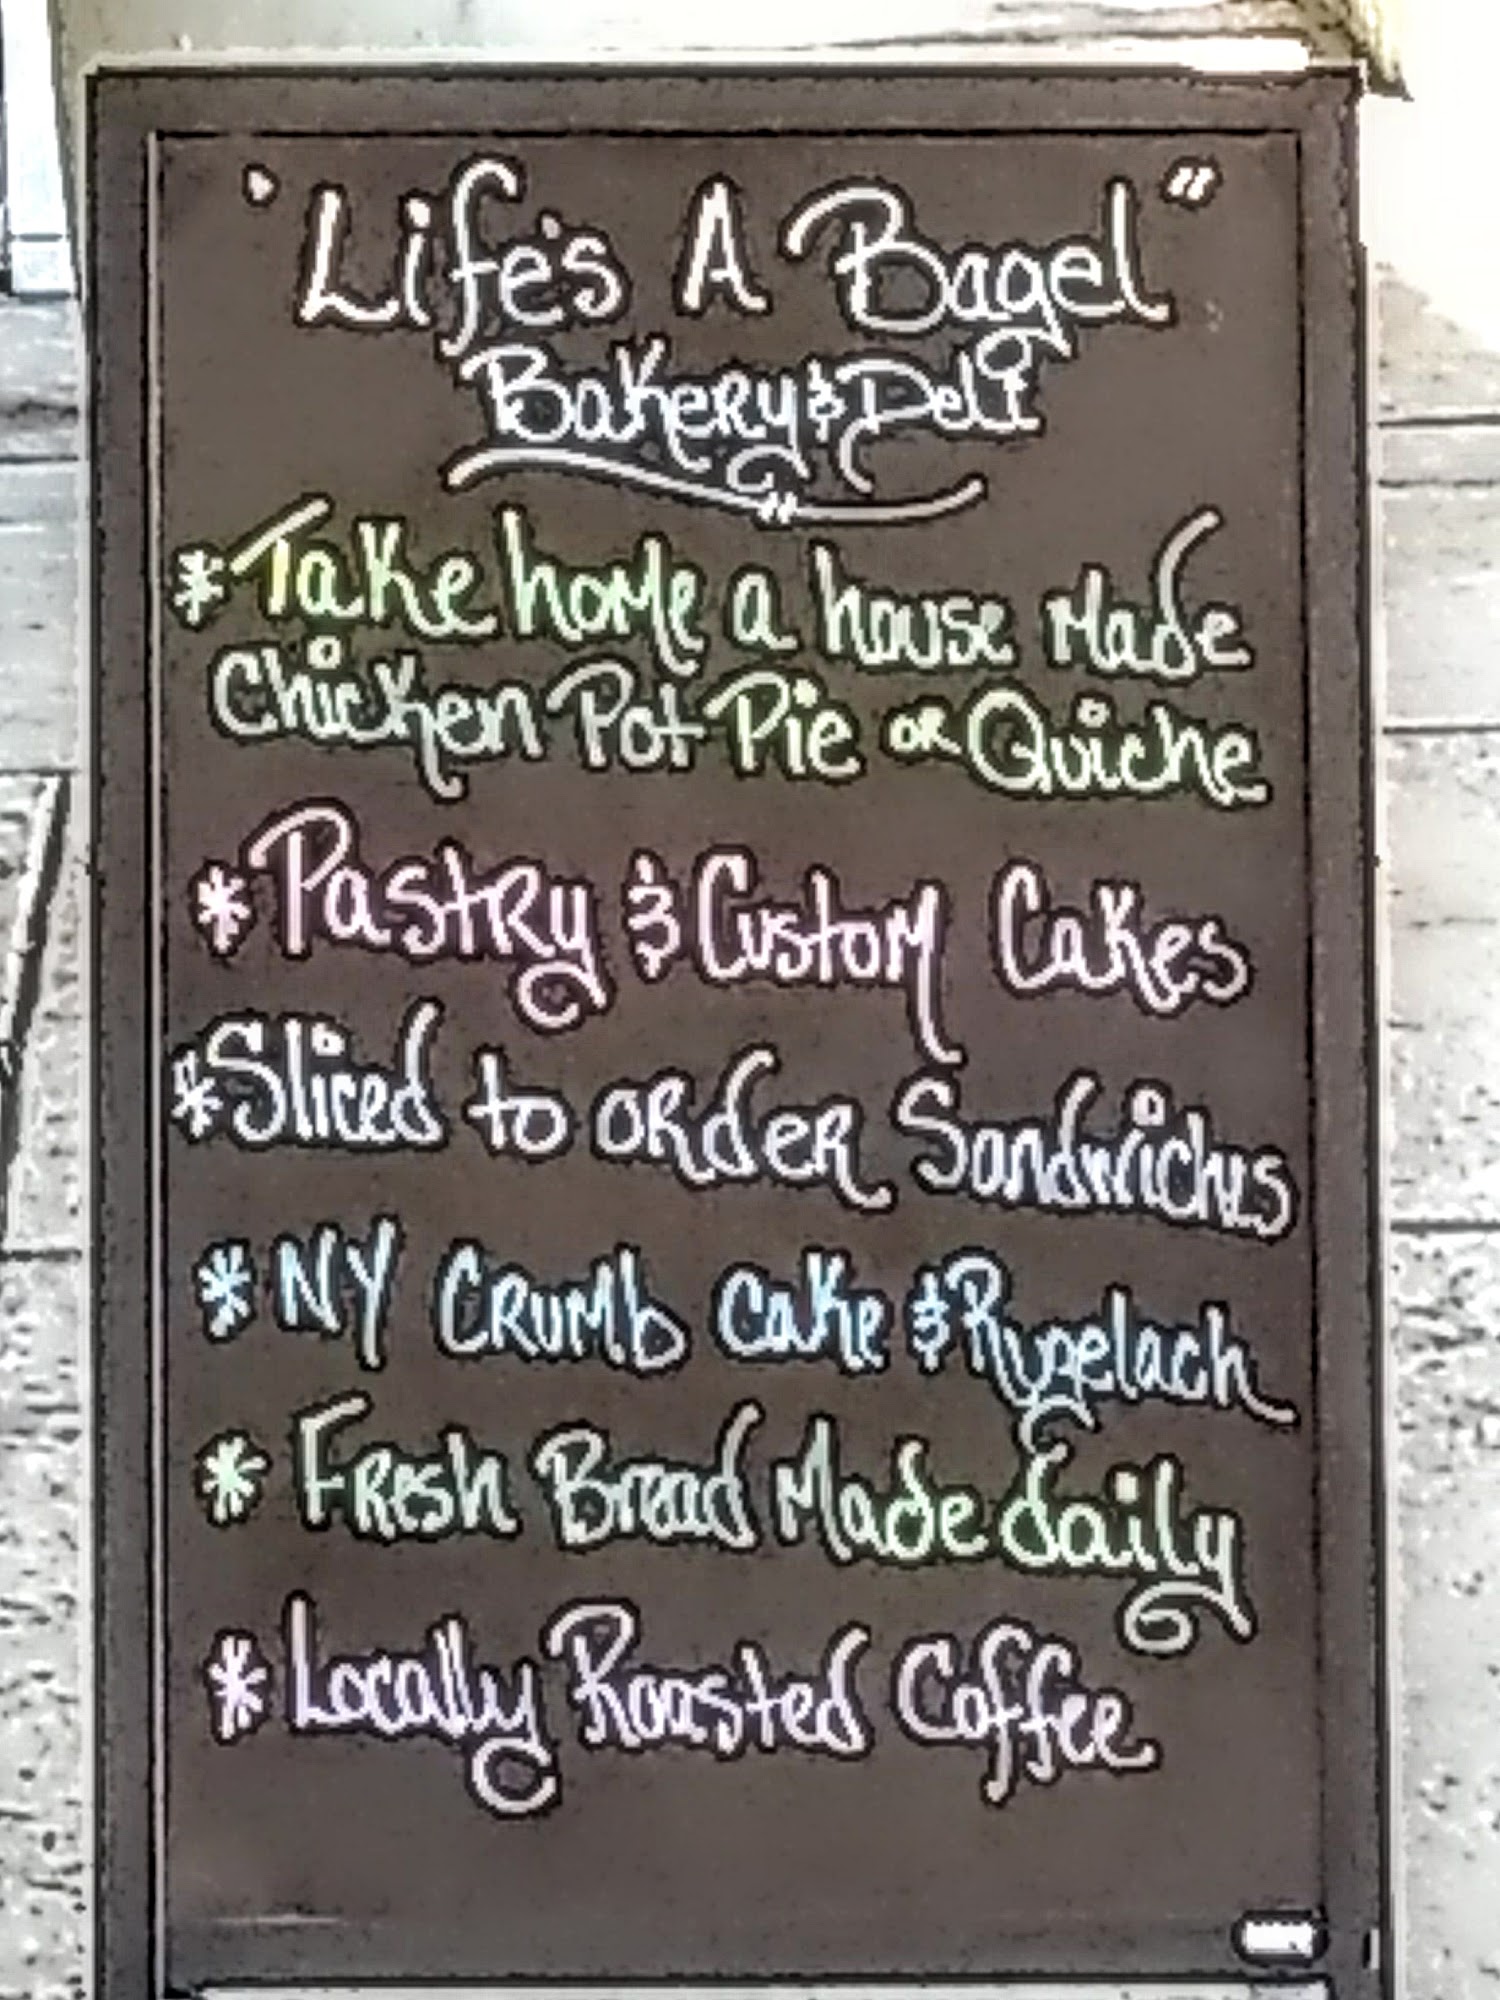 "Life's A Bagel"
Bakery & Deli
*Take home a house Made
Chicken Pot Pie or Quiche
*Pastry & Custom Cakes
*Sliced to order Sandwiches
*NY Crumb Cake & Rugelach
*Fresh Bread Made daily
*Locally Roasted Coffee